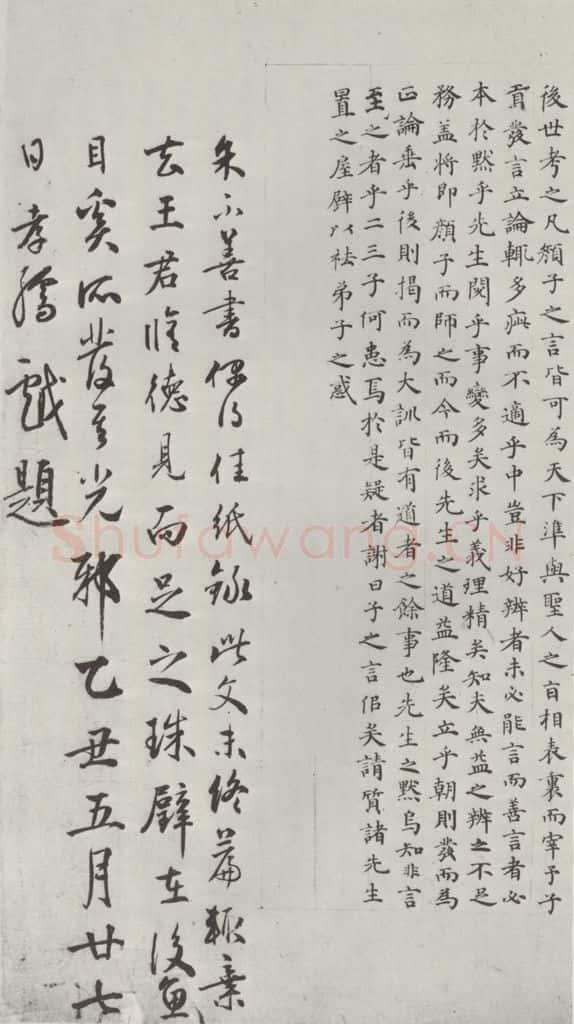 後世考之凡顏子之言皆可為天下準與聖人之旨相表裏而宰予子
貢發言立論輒多疵而不適乎中豈非好辨者未必能言而善言者必
本於默乎先生閱乎事變多矣求乎義理精矣知夫無益之辨之不足
務盖將即顏子而師之而今而後先生之道益隆矣立乎朝則發而為
正論垂乎後則揭而為大訓皆有道者之餘事也先生之默烏知非言
至之者乎二三子何患焉於是疑者謝曰子之言佀矣請質諸先生
置之屋壁以祛弟子之惑
余不善書偶得佳紙錄此文未終篇輒棄
去王君脩德見而足之珠璧在後魚
目奚所發其光邪乙丑五月廿七
日孝孺戲題
Shufawang.CN